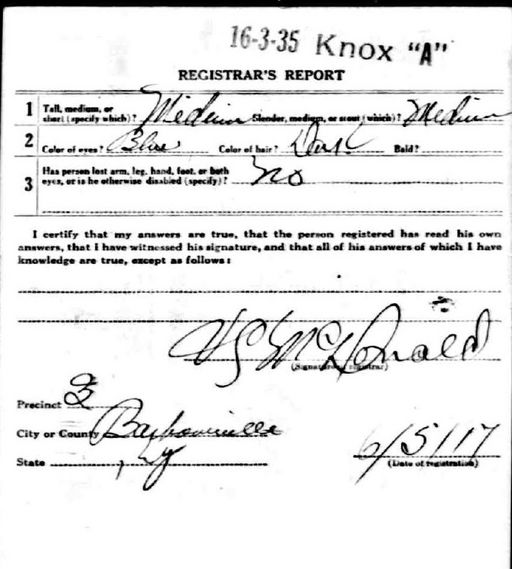 16-3-35 Knox "A"
REGISTRAR'S REPORT
1 Tall, medium, or short (specify which)? Medium Slender, medium, or stout (which)? Medium
2 Color of eyes? Blue Color of hair? Dark Bald?
3 Has person lost arm, leg, hand, foot, or both eyes, or is he otherwise disabled (specify)? No
I certify that my answers are true, that the person registered has read his own
answers, that I have witnessed his signature, and that all of his answers of which I have
knowledge are true, except as follows:
McDonald
(Signature of registrar)
Precinct 3
City or County Barbourville
State Ky
6/5/17
(Date of registration)